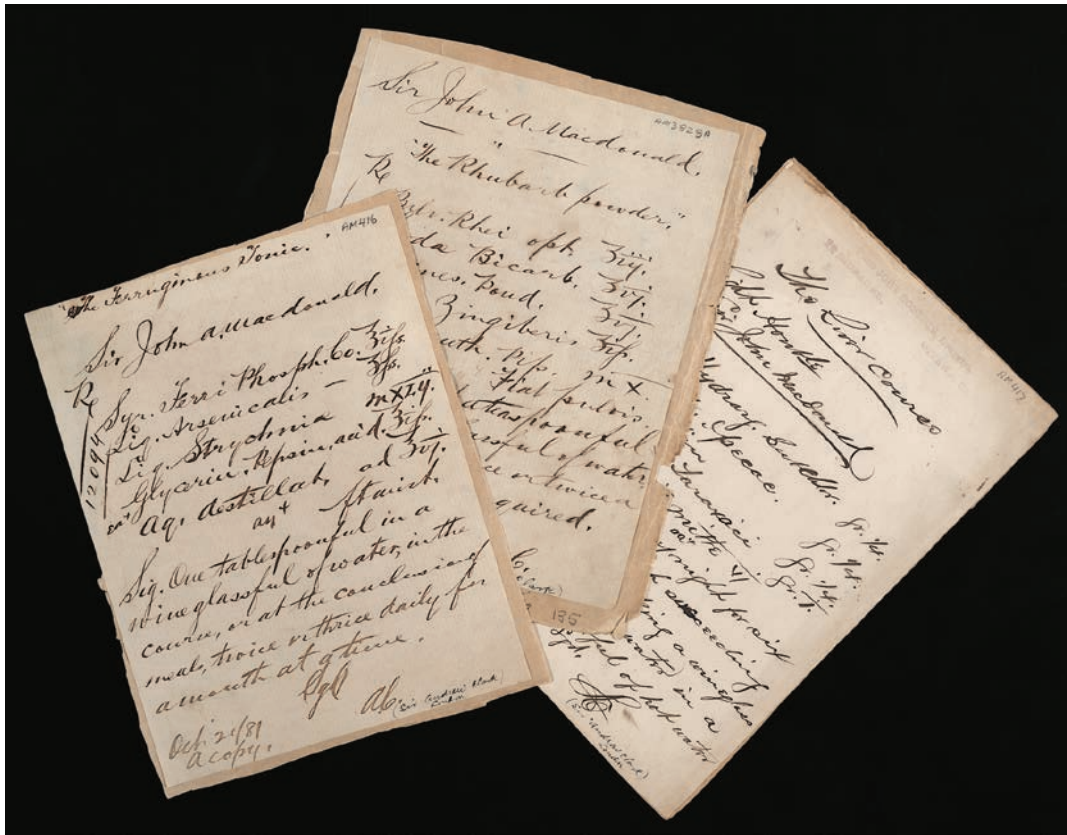 AM416
"The Ferruginous Tonic."
Sir John A. Macdonald.
Rx
Syr. Ferri Phosph. Co. ʒifs.
Liq. Arsenicalis ʒfs.
Liq. Strychnia
Glycerin. Pepsin. acid. ʒifs.
Aq. destillat. ad ʒvj.
12094
ft mist.
Sig. One tablespoonful in a
wineglassful of water, in the
course, or at the conclusion of
meals, twice or thrice daily for
a month at a time.
Sgd
A.C.
(Sir Andrew Clark
London)
Oct. 21/81
A copy.
AM3828A
Sir John A. Macdonald.
"The Rhubarb powder."
Rx
Rhei opt. ʒiij.
Bicarb. ʒvj.
Pond. ʒvj.
Zingiberis ʒifs.
Pip. m x.
Fiat pulvis.
teaspoonful
of water
or twice a
quired.
C.
135
AM417
The Liver Course
Honble
Sir John MacDonald
Hydrarg. Subchlor. gr. 1/4.
Ipecac. gr. 1/4.
gr. 1/4.
Taraxaci gr. 1.
mitte vj
night for six
succeeding
a wineglass
water) in a
ful of hot water
Sgd.
AC
(Sir Andrew Clark)
London